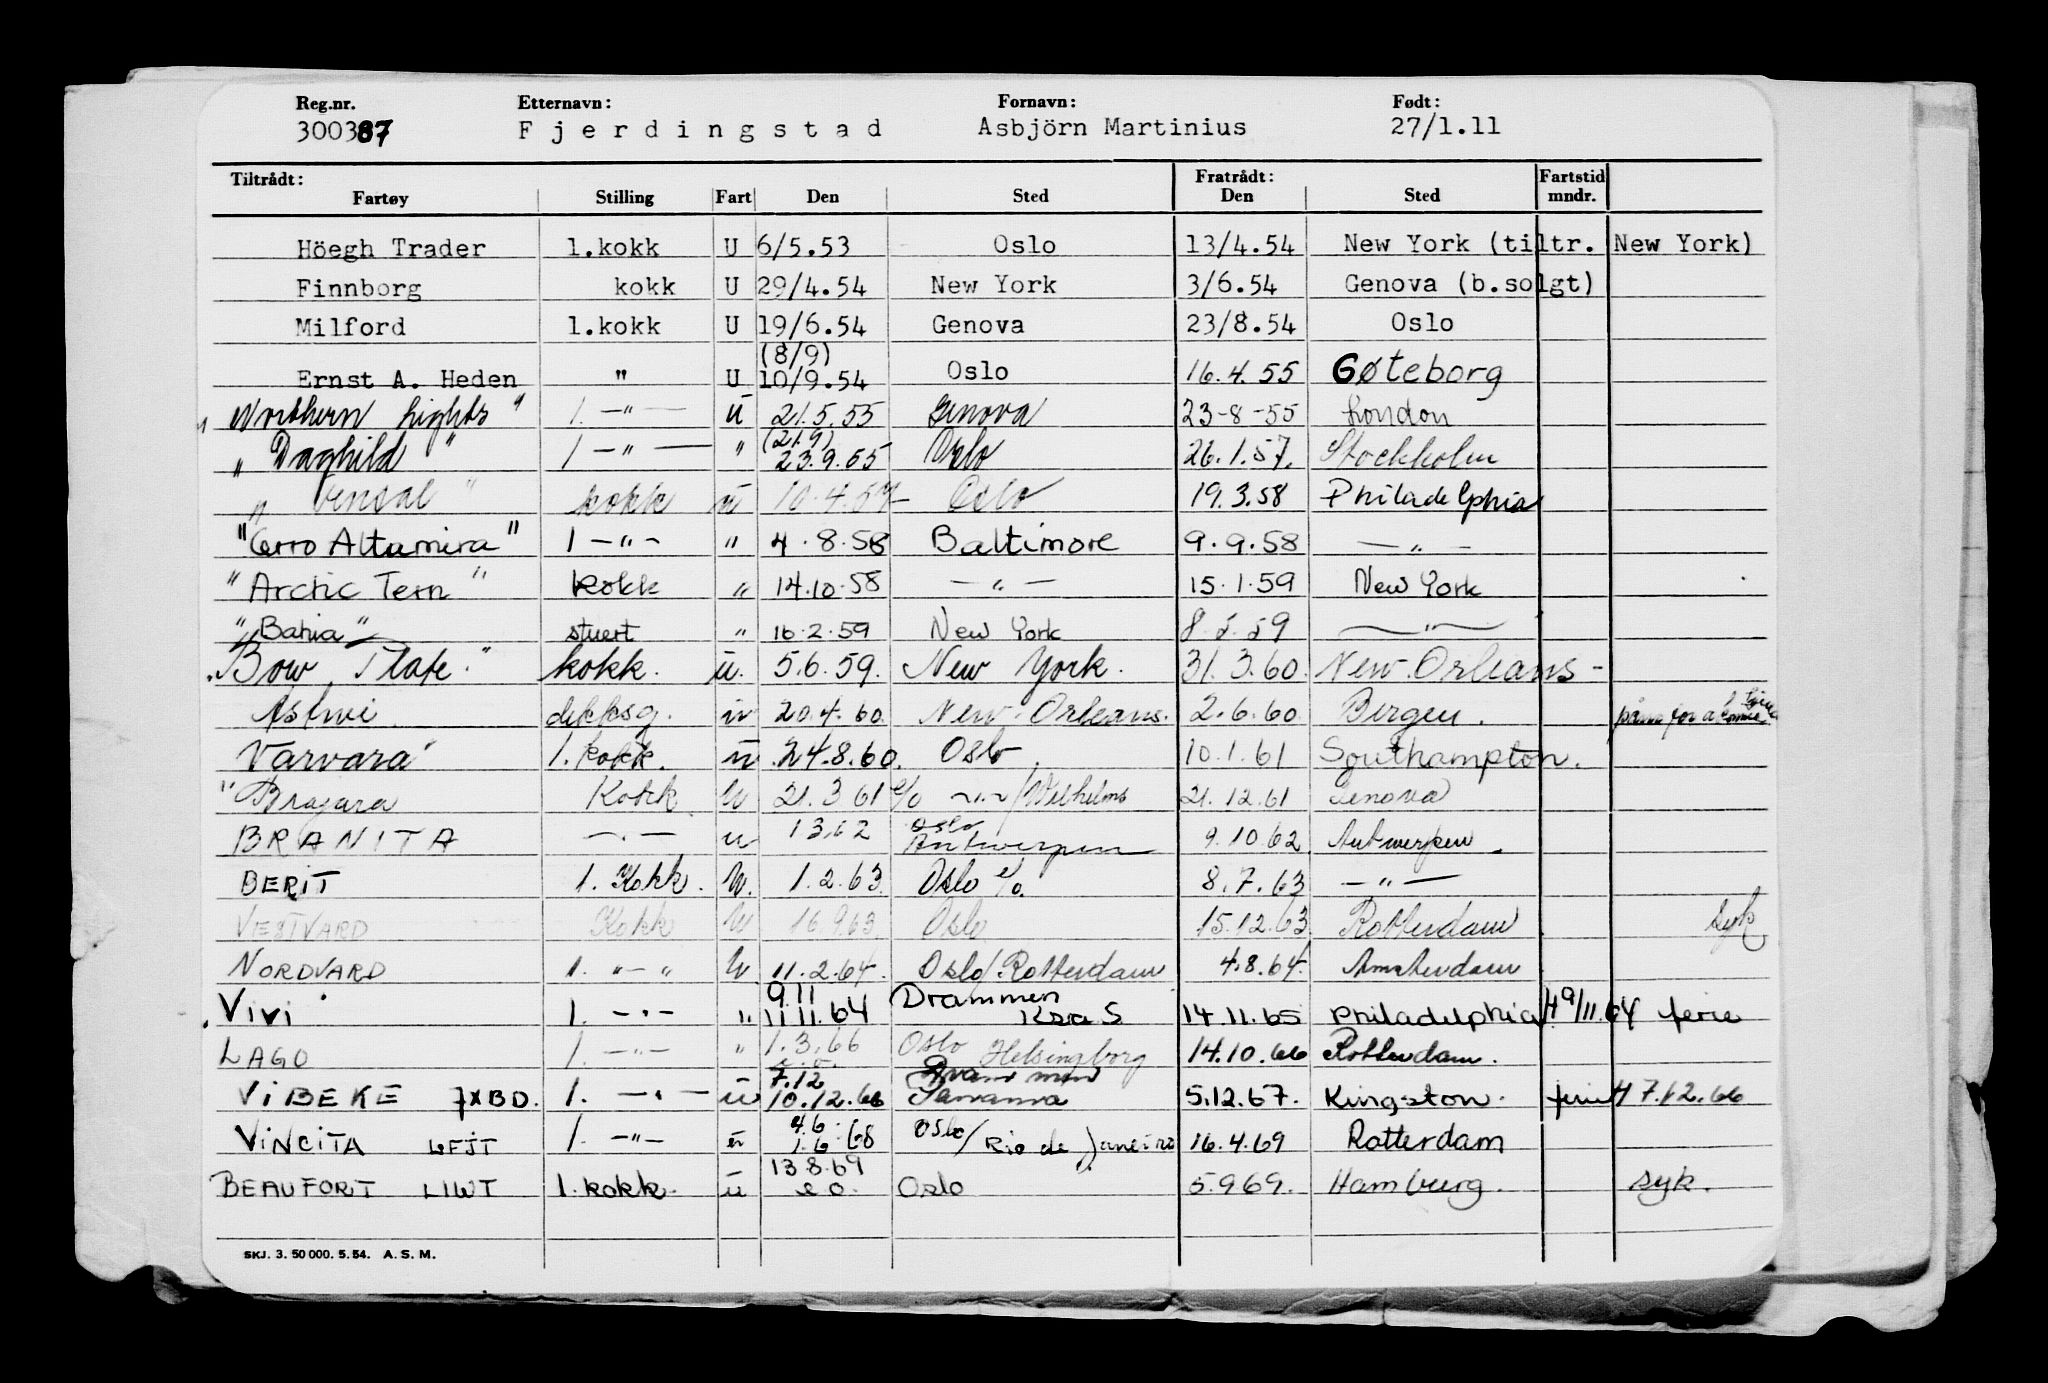 Reg.nr. Etternavn: Fornavn: Født:
300387 Fjerdingstad Asbjörn Martinius 27/1.11
Tiltrådt: Fratrådt: Fartstid
Fartøy Stilling Fart Den Sted Den Sted mndr.
Höegh Trader 1.kokk U 6/5.53 Oslo 13/4.54 New York (tiltr. New York)
Finnborg kokk U 29/4.54 New York 3/6.54 Genova (b.solgt)
Milford 1.kokk U 19/6.54 Genova 23/8.54 Oslo
(8/9)
Ernst A. Heden " U 10/9.54 Oslo 16.4.55 Gøteborg
Northern Lights" 1. —"— ü 21.5.55 Genova 23-8-55 London
(21.9)
" Daghild " 1 —"— " 23.9.55 Oslo 26.1.57. Stockholm
" Vensal " kokk ü 10.4.57 Oslo 19.3.58 Philadelphia
"Cerro Altamira" 1 —"— " 4.8.58 Baltimore 9.9.58 —"—
"Arctic Tern" kokk " 14.10.58 —"— 15.1.59 New York
"Bahia" stuert " 16.2.59 New York 8.5.59 —"—
"Bow Plate." kokk. ü. 5.6.59. New York. 31.3.60 New-Orleans-
Astrui dekksg. ü 20.4.60 New-Orleans. 2.6.60. Bergen.
Varvara" 1. kokk. ü 24.8.60. Oslo. 10.1.61 Southampton.
"Bragara Kokk U 21.3.61 e/o —"—/Wilhelms 21.12.61 Genova
Oslo
BRANITA —"— u 1 3.62 Antwerpen 9.10.62 Antwerpen.
BERIT 1. Kokk. U. 1.2.63. Oslo e/o. 8.7.63 —"—
VESTVARD Kokk U 16.9.63. Oslo 15.12.63 Rotterdam syk
NORDVARD 1. "—" U 11.2.64. Oslo/Rotterdam 4.8.64. Amsterdam
9.11 Drammen
VIVI 1. —"— " 11.11.64 14.11.65 Philadelphia H 9/11.64 ferie
LAGO 1. —"— " 1.3.66 Oslo Helsingborg 14.10.66 Rotterdam.
7.12 Drammen
VIBEKE JXBD. 1. —"— ü 10.12.66 Panama 5.12.67. Kingston. ferie H 7.12.66
4.6
VINCITA LFJT 1. —"— ü 1.6.68 Oslo/Rio de Janeiro 16.4.69 Rotterdam
13.8.69
BEAUFORT LIWT 1. kokk. ü e o. Oslo 5.9 69. Hamburg. syk.
SKJ. 3. 50 000. 5. 54. A. S. M.